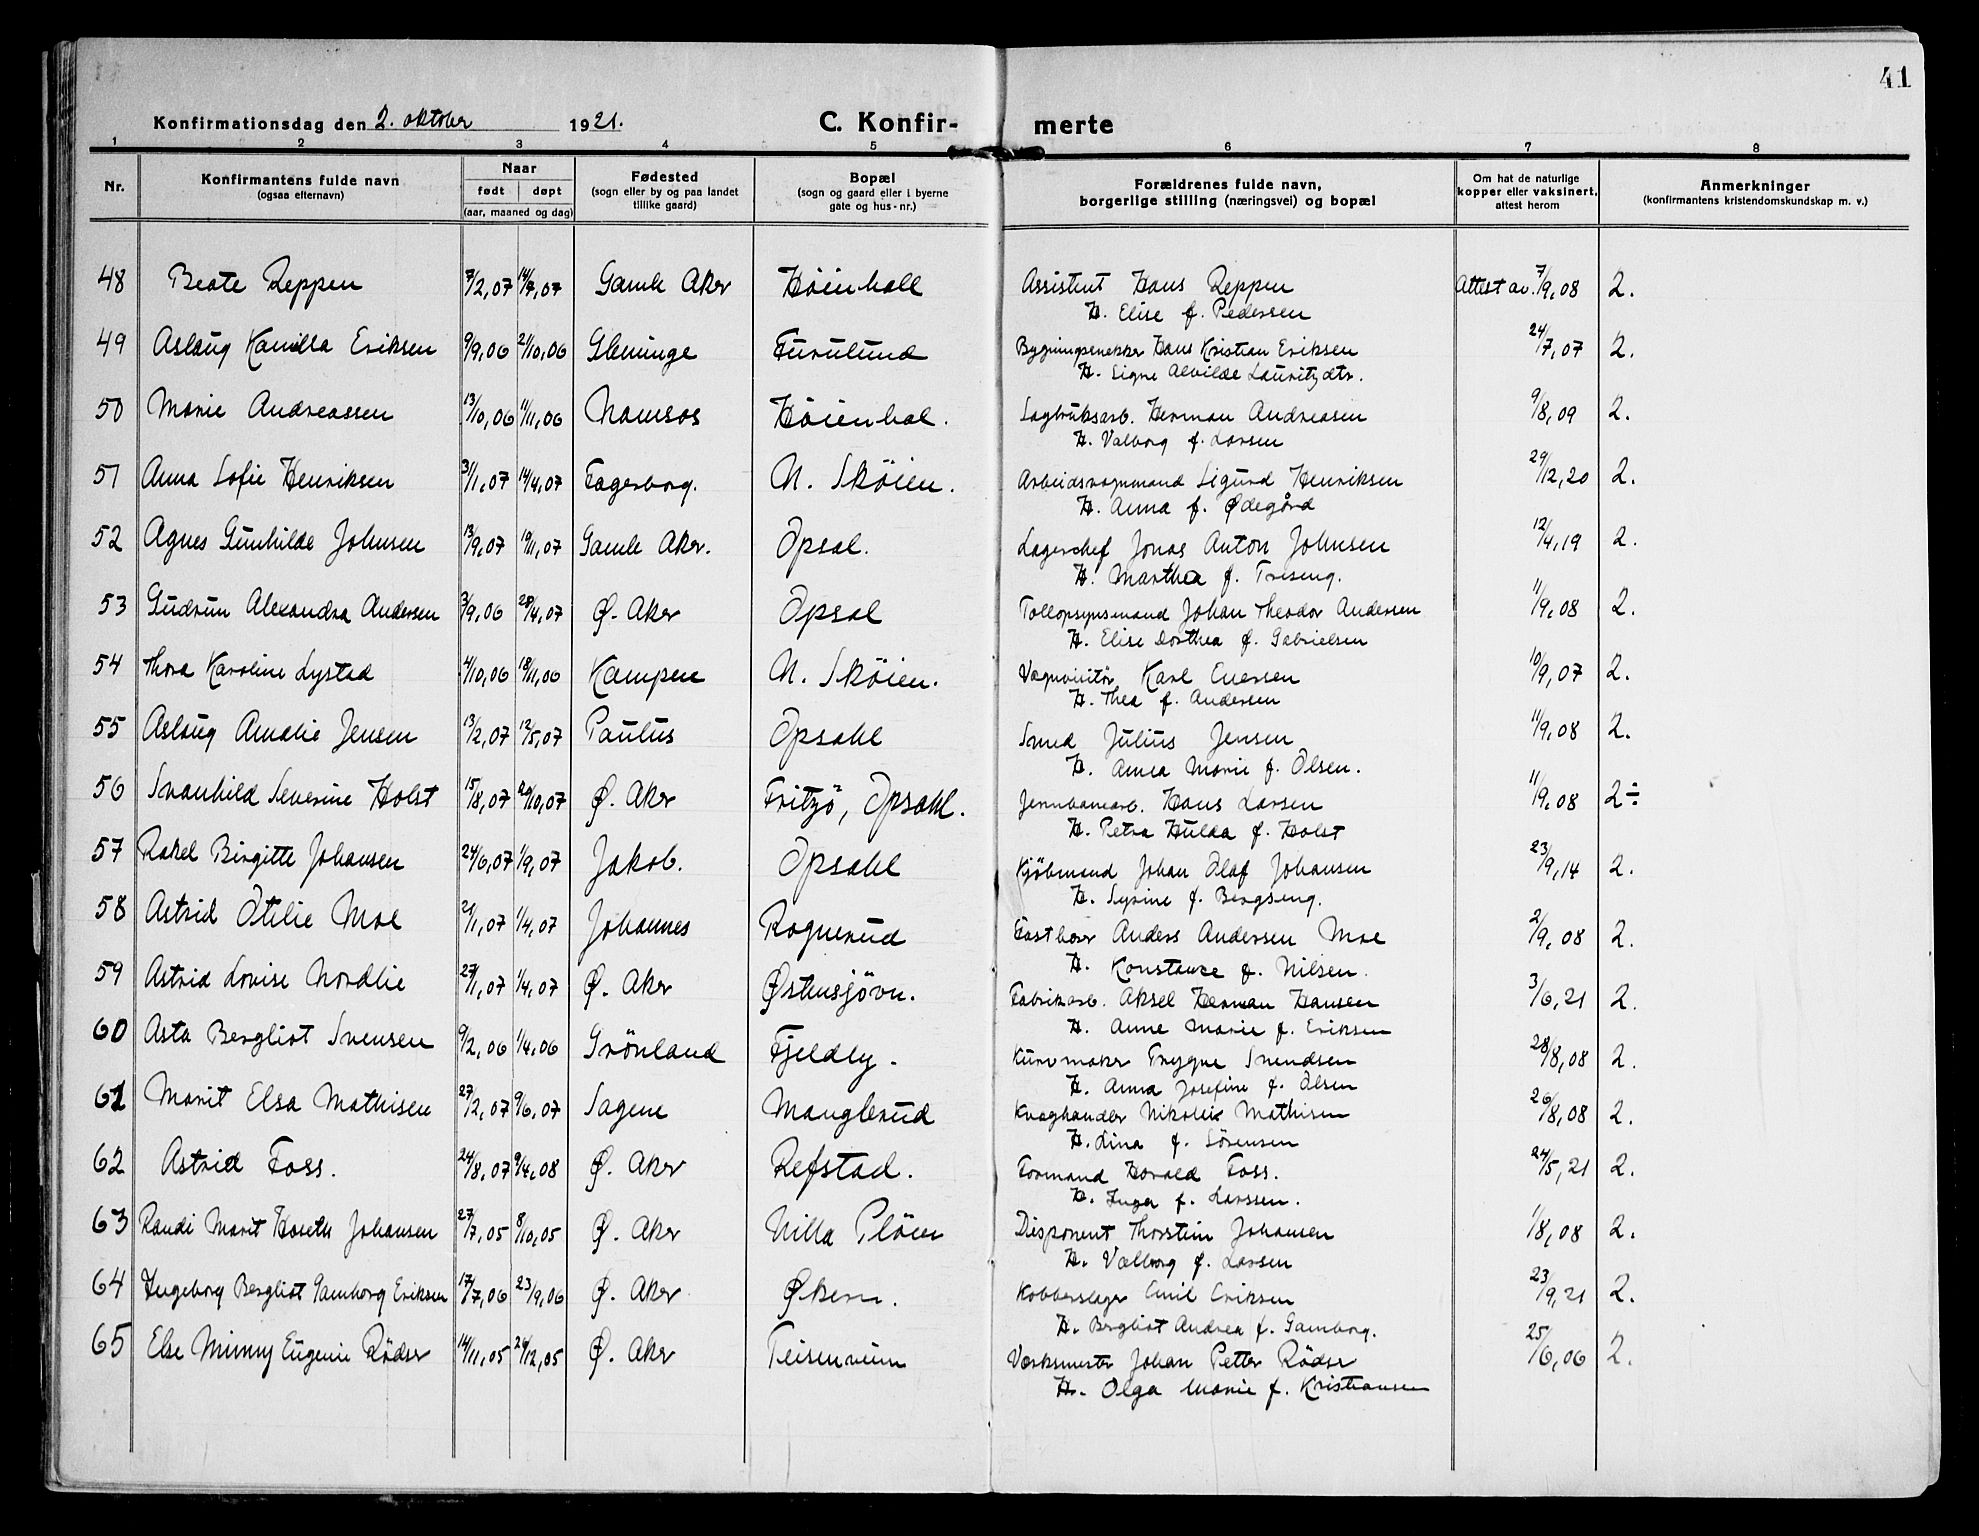 41
Konfirmationsdag den 2. oktober 1921.
C. Konfirmerte
1 2 3 4 5 6 7 8
Nr.
Konfirmantens fulde navn
(ogsaa efternavn)
Naar
født døpt
(aar, maaned og dag)
Fødested
(sogn eller by og paa landet
tillike gaard)
Bopæl
(sogn og gaard eller i byerne
gate og hus-nr.)
Forældrenes fulde navn,
borgerlige stilling (næringsvei) og bopæl
Om hat de naturlige
kopper eller vaksinert,
attest herom
Anmerkninger
(konfirmantens kristendomskundskap m. v.)
48 Beate Reppen 7/2,07 14/7,07 Gamle Aker Høienhall Assistent Hans Reppen Attest av 7/9,08 2.
H. Elise f. Pedersen
49 Aslaug Kamilla Eriksen 9/9,06 21/10,06 Glemminge Furulund Bygningssnekker Hans Kristian Eriksen 24/7,07 2.
H. Signe Alvilde Lauritzdtr.
50 Marie Andreassen 13/10,06 11/11,06 Namsos Høienhal. Sagbruksarb. Herman Andreasen 9/8,09 2.
H. Valborg f. Larsen
51 Anna Sofie Henriksen 3/1,07 14/4,07 Fagerborg. N. Skøien. Arbeidsvognmand Sigurd Henriksen 29/12,20 2.
H. Anna f. Ødegård
52 Agnes Gunhilde Johnsen 13/9,07 19/11,07 Gamle Aker. Opsal. Lagerchef Jonas Anton Johnsen 12/4,19 2.
H. Martha f. Treseng.
53 Gudrun Alexandra Andersen 3/9,06 28/4,07 Ø. Aker Opsal Tollopsynsmand Johan Theodor Andersen 11/9,08 2.
H. Elise Dorthea f. Gabrielsen
54 Thora Karoline Lystad 4/10,06 18/11,06 Kampen N. Skøien. Vognvisitør Karl Evensen 10/9,07 2.
H. Thea f. Andersen
55 Aslaug Amalie Jensen 13/2,07 12/5,07 Paulus Opsahl Smed Julius Jensen 11/9,08 2.
H. Anna Marie f. Olsen.
56 Svanhild Severine Holst 15/8,07 20/10,07 Ø. Aker Fritzø, Opsahl. Jernbanearb. Hans Larsen 11/9,08 2÷
H. Petra Hulda f. Holst
57 Rakel Birgitte Johansen 24/6,07 1/9,07 Jakob. Opsahl Kjøbmand Johan Olaf Johansen 23/9,14 2.
H. Syrine f. Bergseng.
58 Astrid Otilie Moe 21/1,07 1/4,07 Johannes Rognerud Fasthoser Anders Andersen Moe 2/9,08 2.
H. Konstanse f. Nilsen.
59 Astrid Lovise Nordlie 27/1,07 1/4,07 Ø. Aker Østensjøvn. Fabrikarb. Aksel Herman Hansen 3/6,21 2.
H. Anne Marie f. Eriksen
60 Asta Bergliot Svensen 9/2,06 1/4,06 Grönland Fjeldly. Kurvmaker Trygve Svendsen 28/8,08 2.
H. Anna Josefine f. Olsen
61 Marit Elsa Mathisen 27/2,07 9/6,07 Sagene Manglerud Kvæghandler Nikolai Mathisen 26/8,08 2.
H. Lina f. Sörensen
62 Astrid Foss. 24/8,07 9/4,08 Ø. Aker Refstad. Formand Harald Foss. 24/5,21 2.
H. Inga f. Larssen.
63 Randi Marit Hareth Johansen 27/7,05 8/10,05 Ø. Aker Villa Pløen Disponent Thorstein Johansen 1/8,08 2.
H. Valborg f. Larsen
64 Ingeborg Bergliot Gamborg Eriksen 17/7,06 23/9,06 Ø. Aker Økern. Kobberslager Emil Eriksen 23/9,21 2.
H. Bergliot Andrea f. Gamborg.
65 Else Minny Eugenie Rödser 14/11,05 24/12,05 Ø. Aker Teisenveien Verksmester Johan Petter Rödser 25/6,06 2.
H. Olga Marie f. Kristiansen